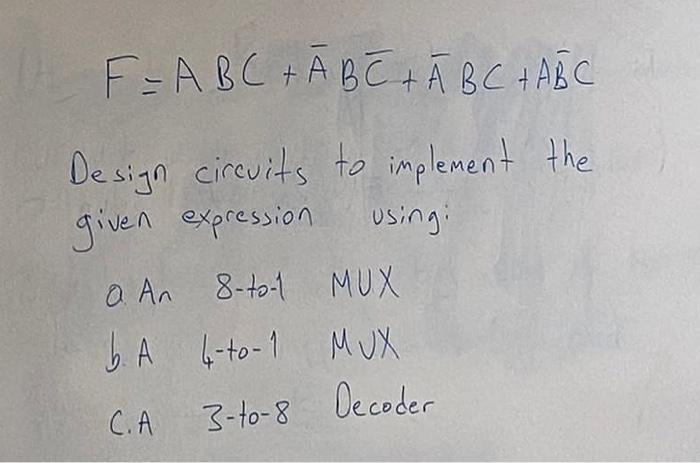 F = A B C + A̅ B C̅ + A̅ B C + A B̅ C
Design circuits to implement the
given expression using:
a. An 8-to-1 MUX
b. A 4-to-1 MUX
C. A 3-to-8 Decoder